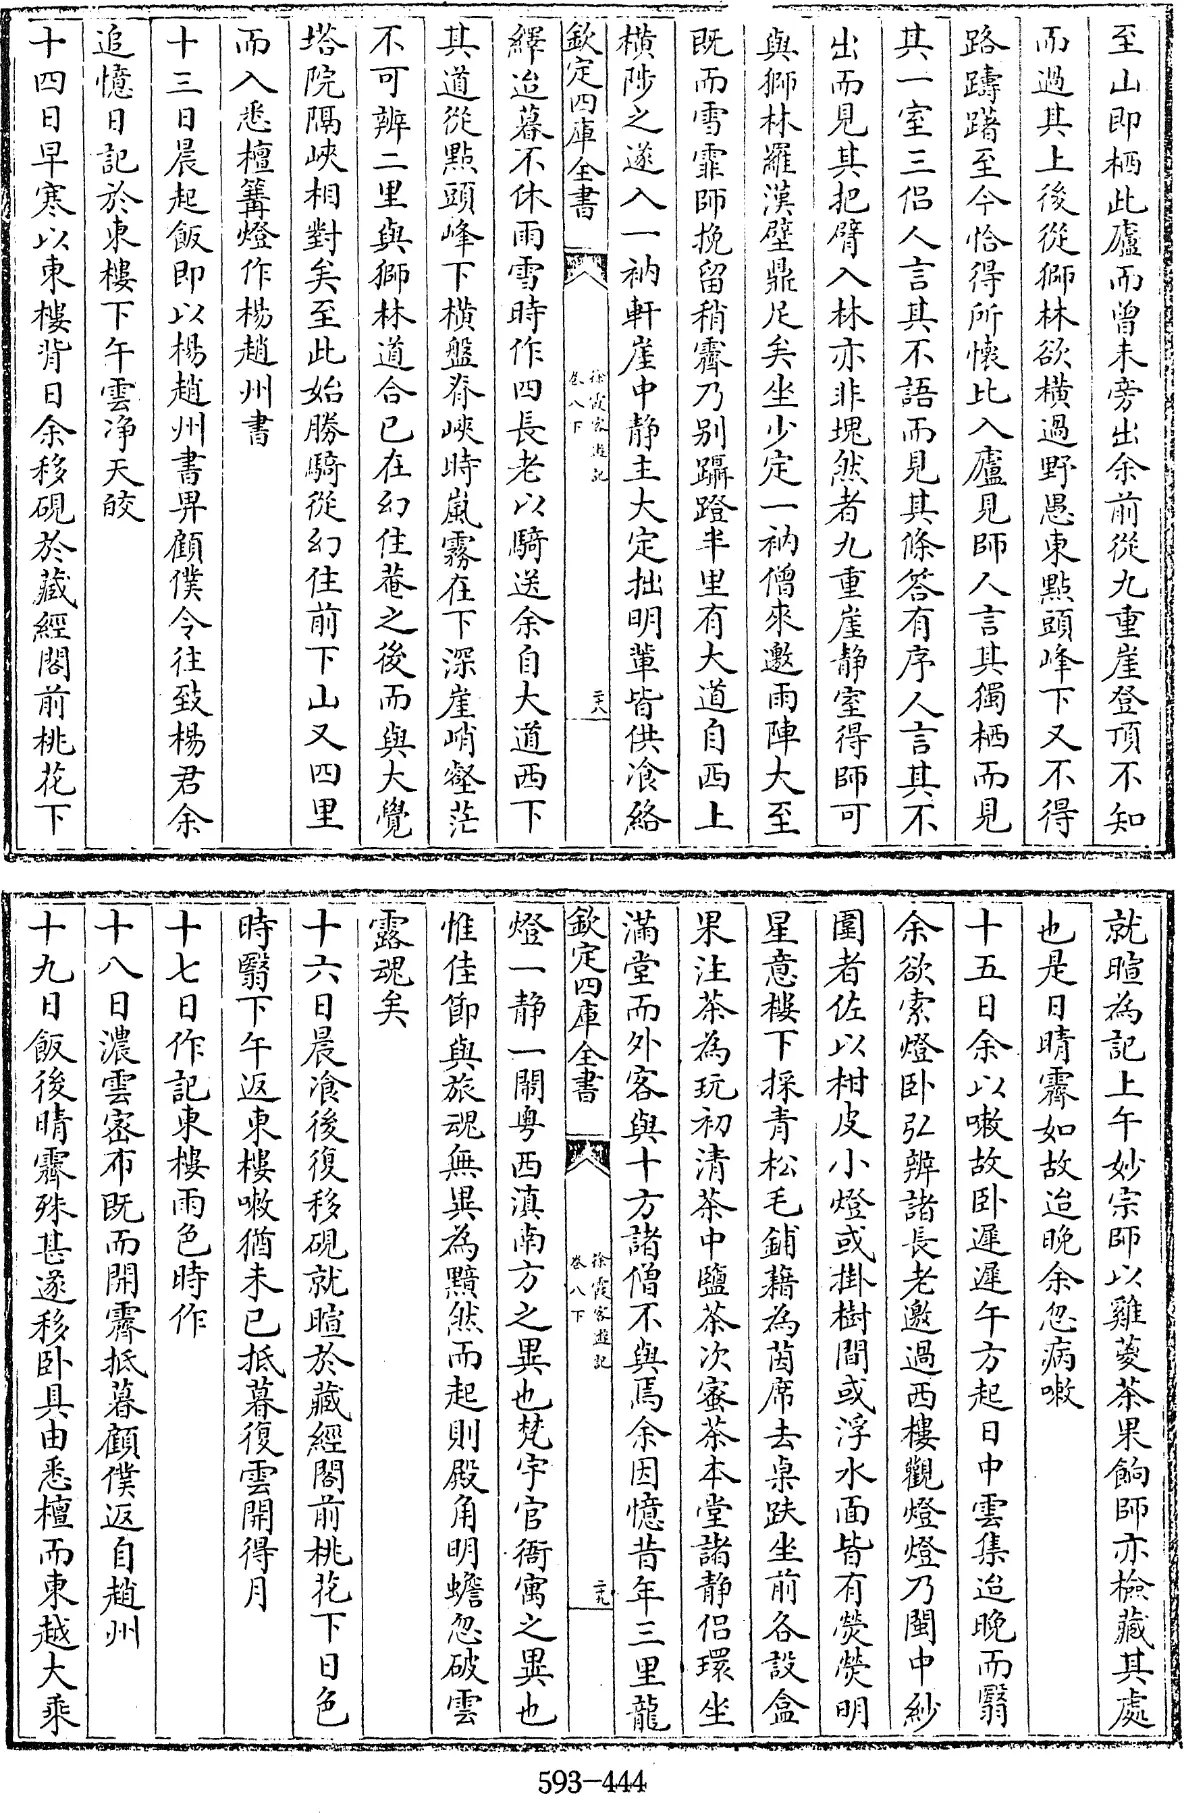 至山即栖此廬而曾未旁出余前從九重崖登頂不知
而過其上後從獅林欲横過野愚東點頭峰下又不得
路躊躇至今恰得所懷比入廬見師人言其獨栖而見
其一室三侣人言其不語而見其條答有序人言其不
出而見其把臂入林亦非塊然者九重崖静室得師可
與獅林羅漢壁鼎足矣坐少定一衲僧來邀雨陣大至
既而雪霏師挽留稍霽乃别躡蹬半里有大道自西上
横陟之遂入一衲軒崖中静主大定拙明輩皆供飡絡
欽定四庫全書
徐霞客遊記
卷八下
二十八
繹迨暮不休雨雪時作四長老以騎送余自大道西下
其道從點頭峰下横盤脊峽時嵐霧在下深崖峭壑茫
不可辨二里與獅林道合已在幻住菴之後而與大覺
塔院隔峽相對矣至此始勝騎從幻住前下山又四里
而入悉檀篝燈作楊趙州書
十三日晨起飯即以楊趙州書畀顧僕令往致楊君余
追憶日記於東樓下午雲净天皎
十四日早寒以東樓背日余移硯於藏經閣前桃花下
就暄為記上午妙宗師以雞葼茶果餉師亦檢藏其處
也是日晴霽如故迨晚余忽病嗽
十五日余以嗽故卧遲遲午方起日中雲集迨晚而翳
余欲索燈卧弘辨諸長老邀過西樓觀燈燈乃閩中紗
圍者佐以柑皮小燈或掛樹間或浮水面皆有熒熒明
星意樓下採青松毛鋪藉為茵席去桌趺坐前各設盒
果注茶為玩初清茶中鹽茶次蜜茶本堂諸静侣環坐
滿堂而外客與十方諸僧不與焉余因憶昔年三里龍
欽定四庫全書
徐霞客遊記
卷八下
二十九
燈一静一鬧粤西滇南方之異也梵宇官衙寓之異也
惟佳節與旅魂無異為黯然而起則殿角明蟾忽破雲
露魂矣
十六日晨飡後復移硯就暄於藏經閣前桃花下日色
時翳下午返東樓嗽猶未已抵暮復雲開得月
十七日作記東樓雨色時作
十八日濃雲密布既而開霽抵暮顧僕返自趙州
十九日飯後晴霽殊甚遂移卧具由悉檀而東越大乘
593-444